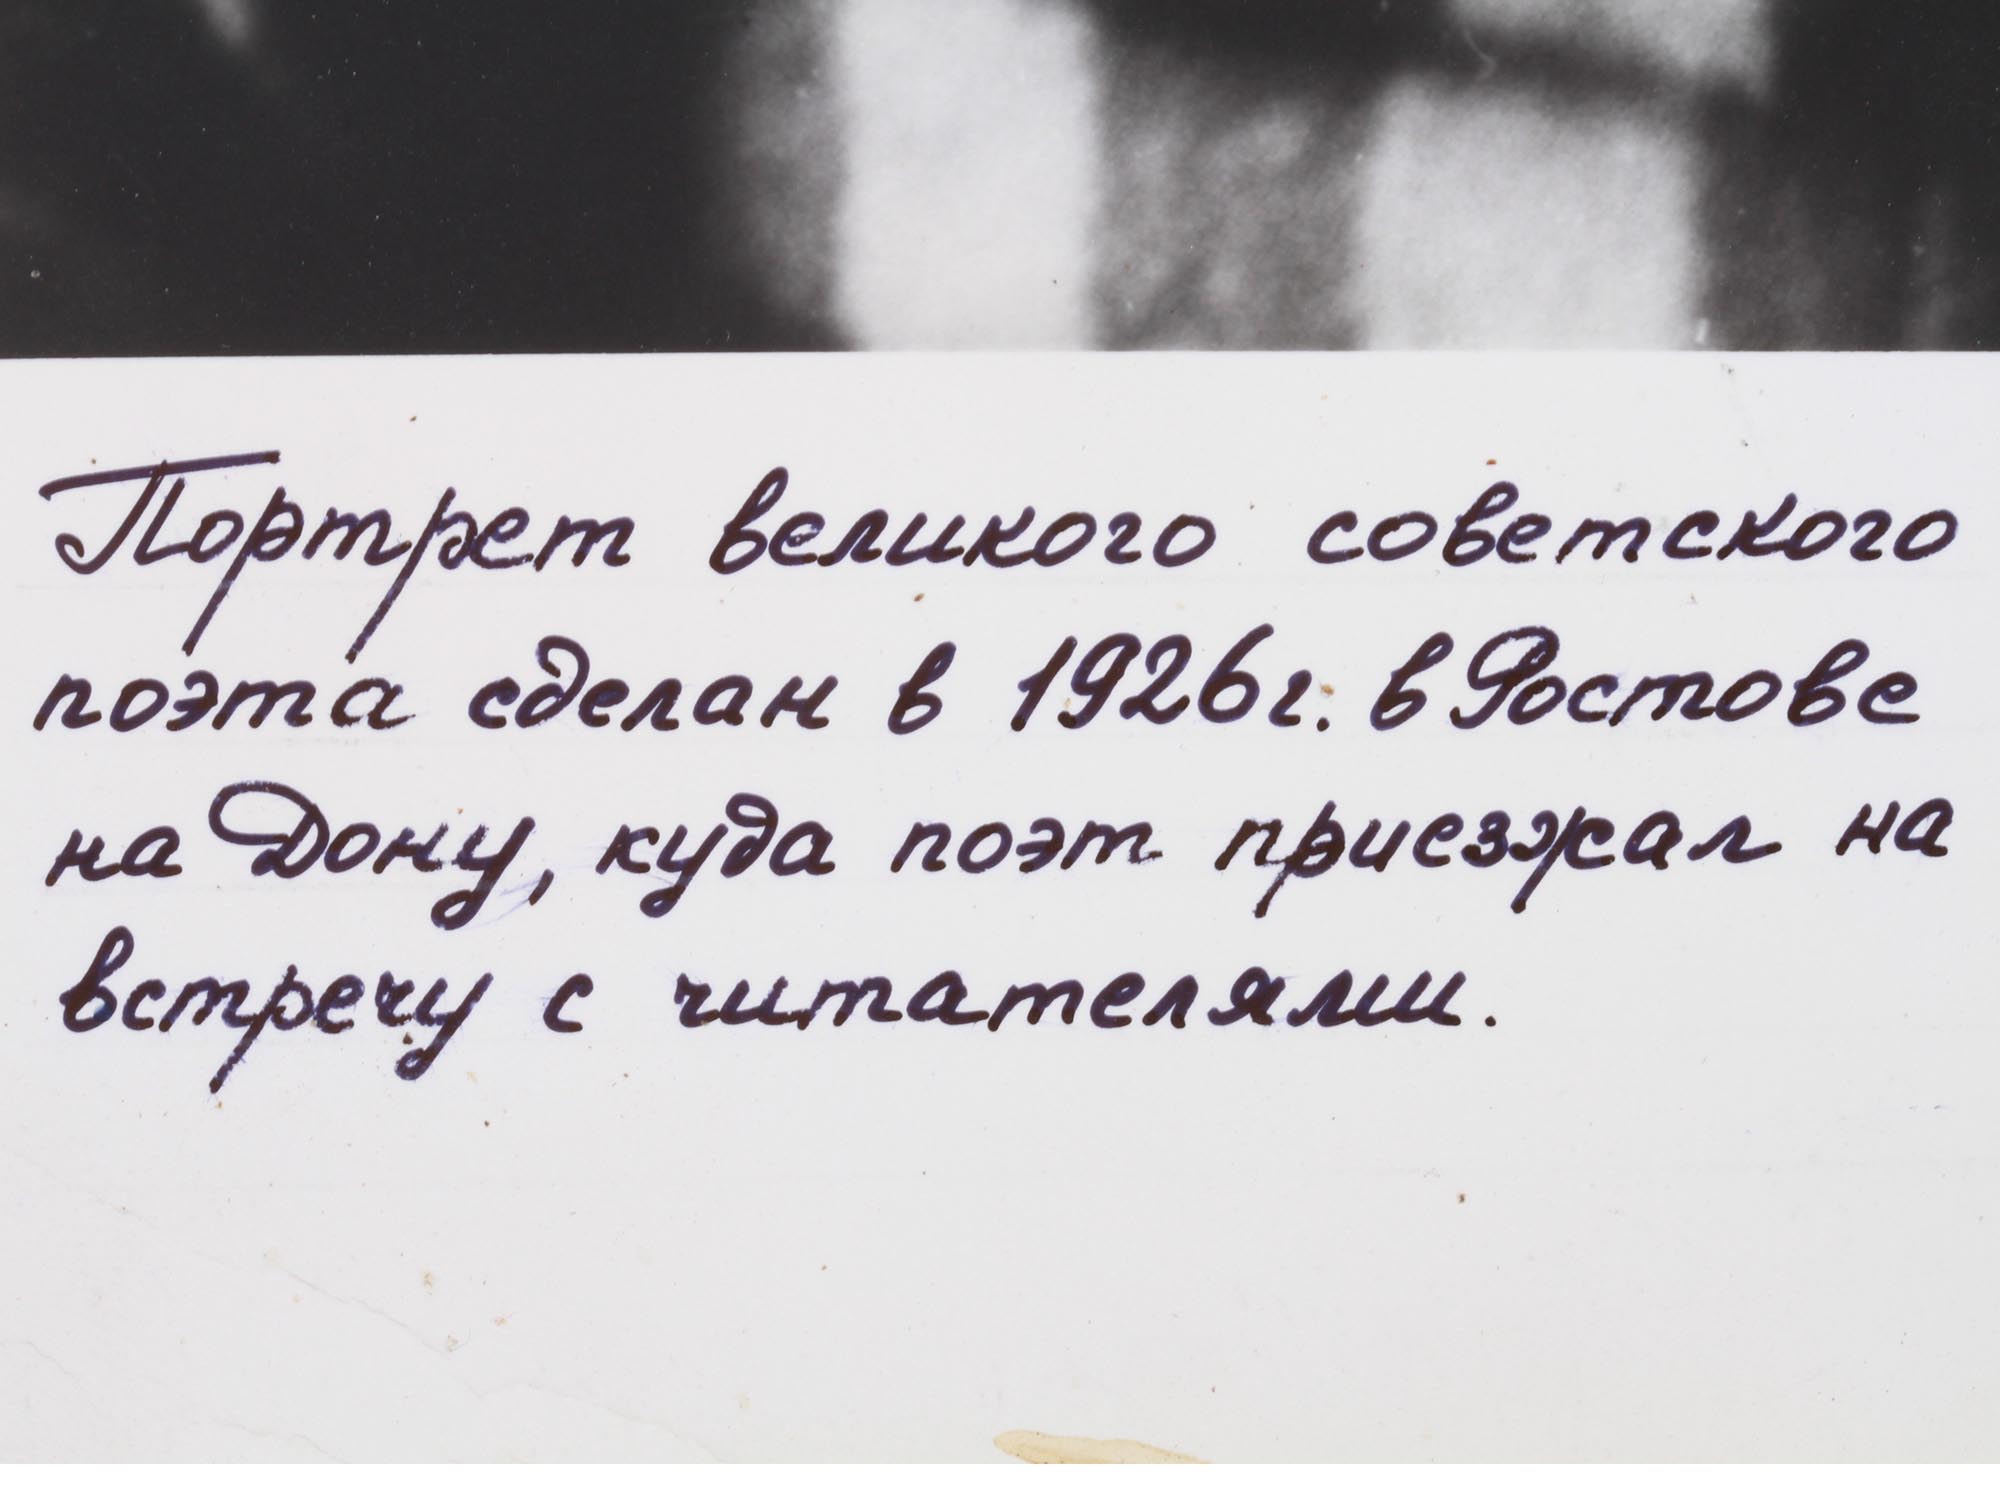 Портрет великого советского
поэта сделан в 1926г. в Ростове
на Дону, куда поэт приезжал на
встречу с читателями.